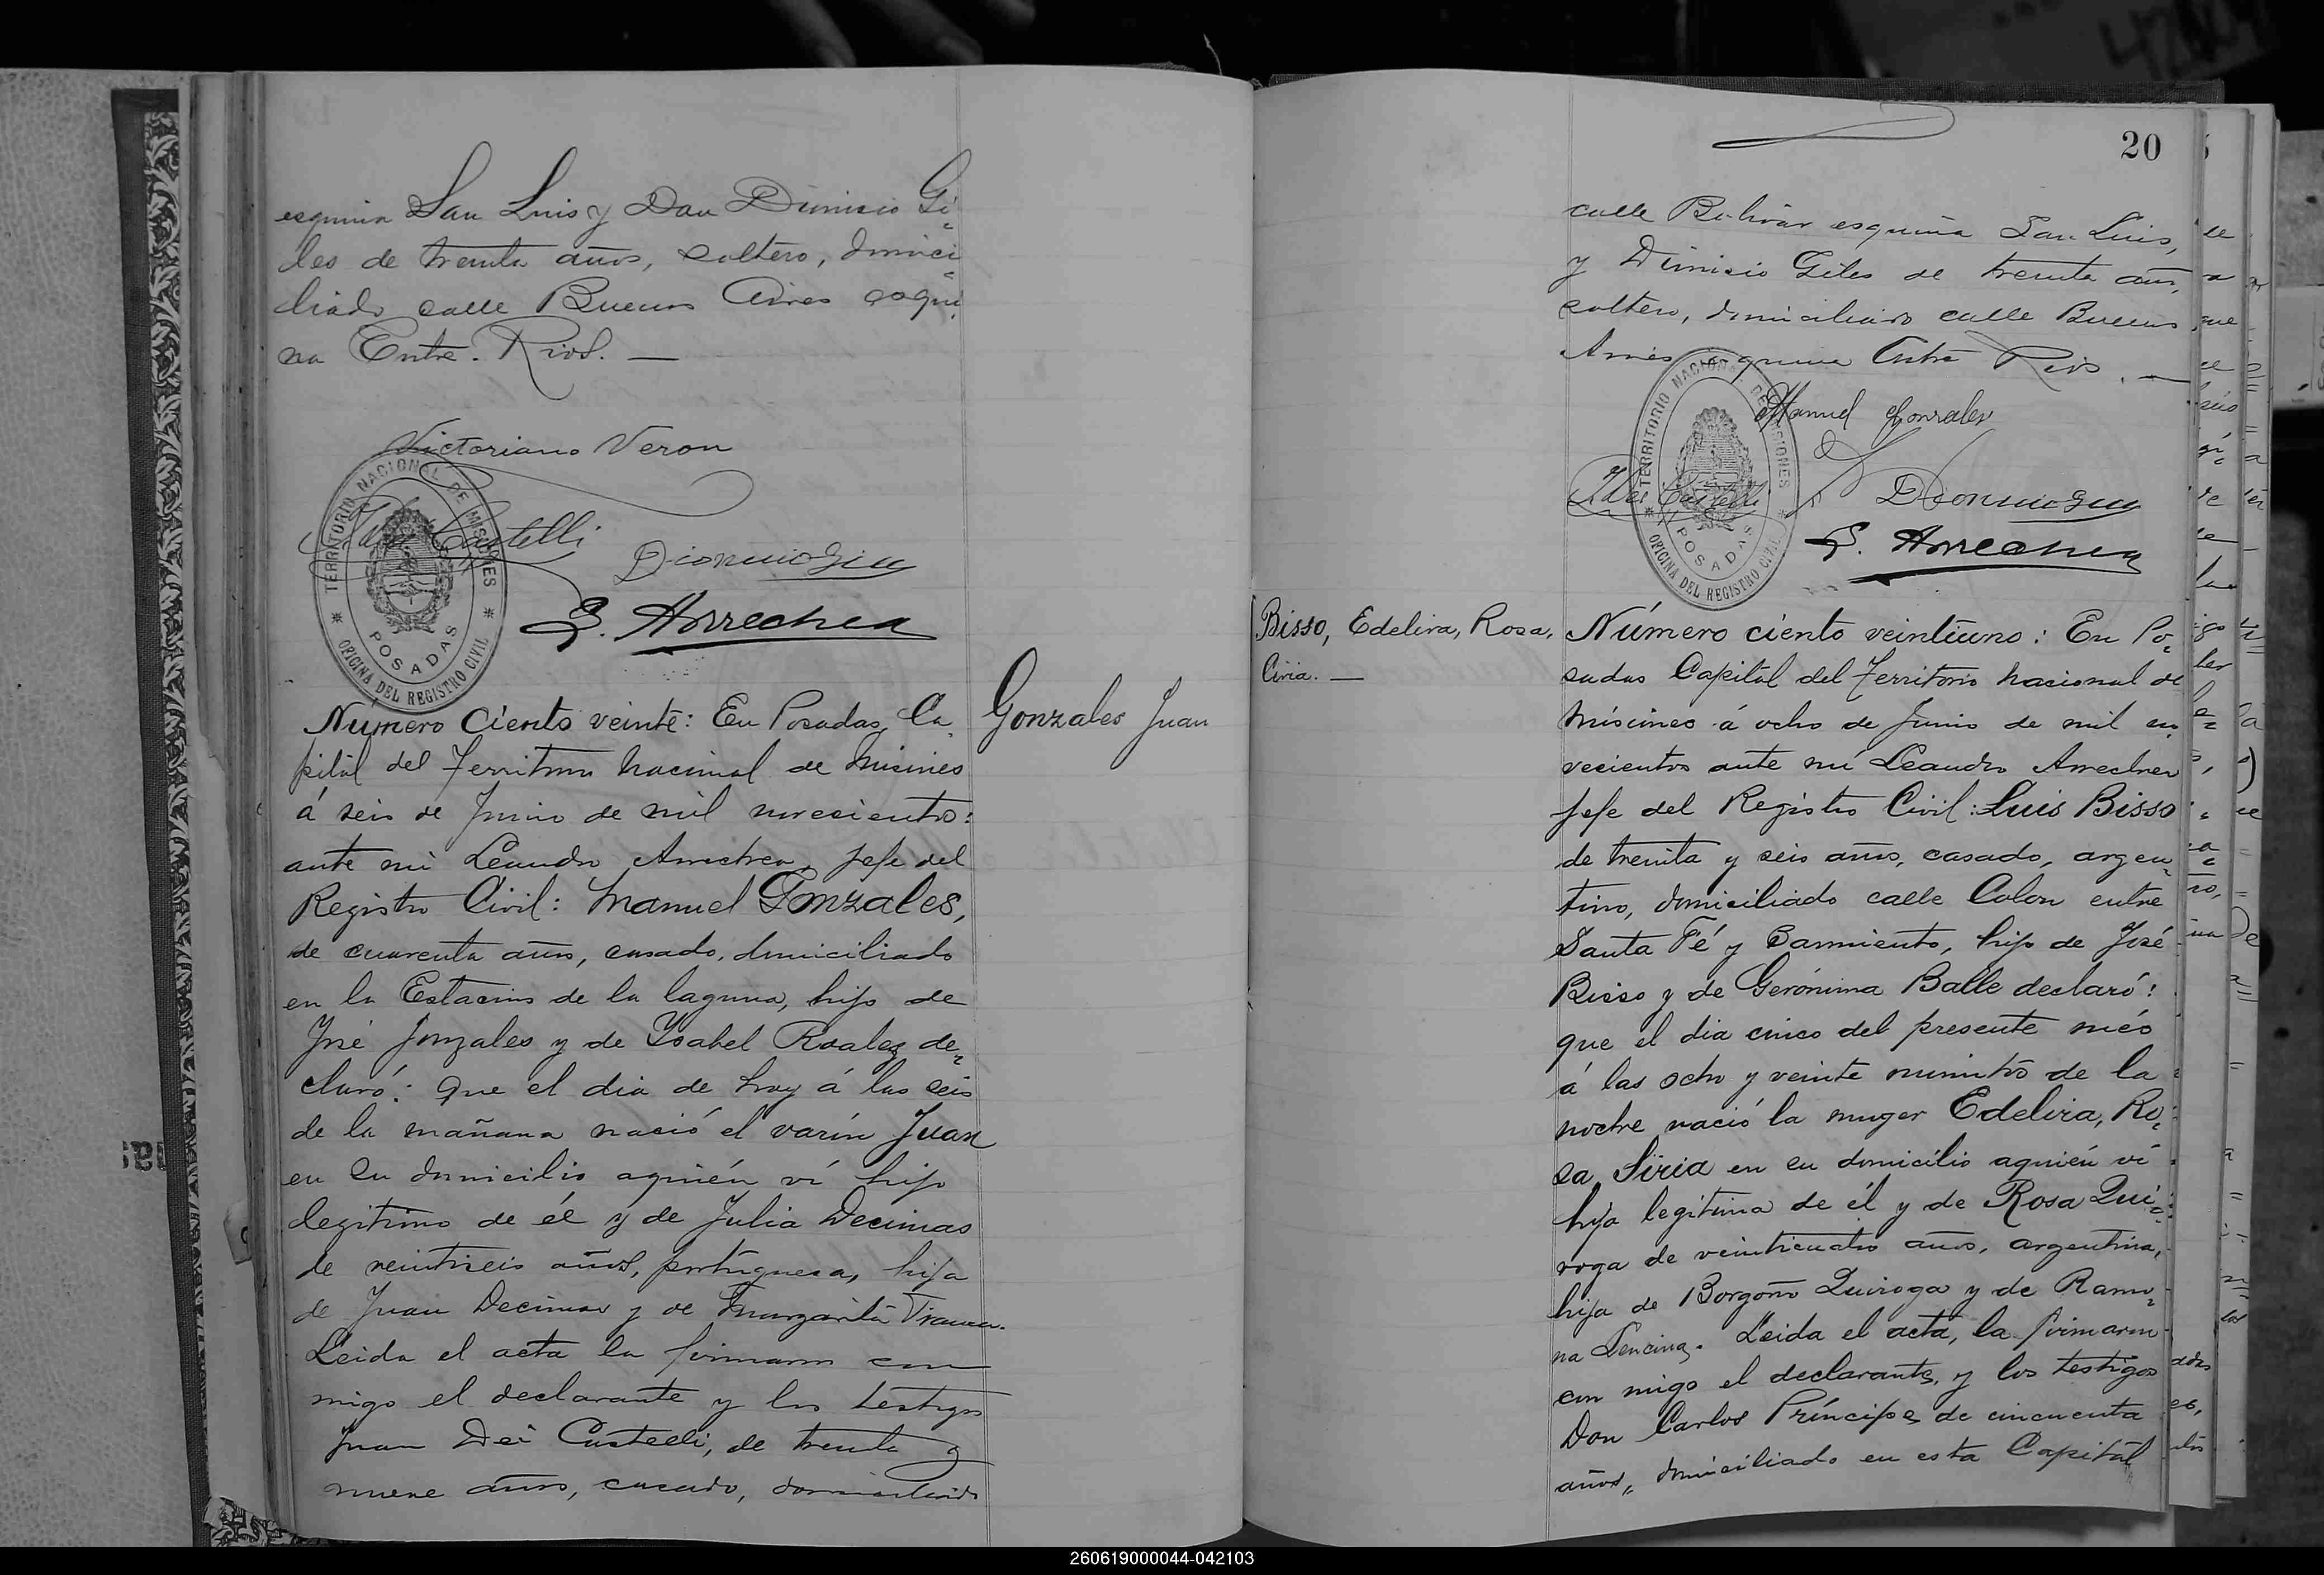 esquina San Luis y Don Dionisio Gi=
les de treinta años, soltero, domici=
liado calle Buenos Aires esqui=
na Entre-Rios. —
Victoriano Veron
Juan Castelli
Dionisio Giles
L. Arrechea
TERRITORIO NACIONAL DE MISIONES
POSADAS
* OFICINA DEL REGISTRO CIVIL *
Gonzales Juan
Número Ciento veinte: En Posadas, Ca=
pital del Territorio Nacional de Misiones
á seis de Junio de mil novecientos:
ante mi Leandro Arrechea, Jefe del
Registro Civil: Manuel Gonzales,
de cuarenta años, casado, domiciliado
en la Estacion de la laguna, hijo de
José Gonzales y de Ysabel Roales de=
claró: Que el dia de hoy á las seis
de la mañana nació el varón Juan
en su domicilio aquién ví hijo
legitimo de él y de Julia Decimas
de veintiseis años, portuguesa, hija
de Juan Decimas y de Margarita
Leida el acta la firmaron con
migo el declarante y los testigos
Juan Dei Castelli, de treinta y
nueve años, casado, domiciliado
20
calle Bolivar esquina San Luis,
y Dionisio Giles de treinta años,
soltero, domiciliado calle Buenos
Aires esquina Entre Rios. —
Manuel Gonzales
Dionisio Giles
L. Arrechea
TERRITORIO NACIONAL DE MISIONES
POSADAS
* OFICINA DEL REGISTRO CIVIL *
Bisso, Edelira, Rosa,
Ciria. —
Número ciento veintiuno: En Po=
sadas Capital del Territorio Nacional de
Misiones á ocho de Junio de mil no=
vecientos ante mí Leandro Arrechea
Jefe del Registro Civil: Luis Bisso
de treinta y seis años, casado, argen=
tino, domiciliado calle Colon entre
Santa Fé y Sarmiento, hijo de José
Bisso y de Gerónima Balle declaró:
que el dia cinco del presente més
á las ocho y veinte minutos de la
noche nació la muger Edelira, Ro=
sa, Siria en su domicilio aquién ví
hija legitima de él y de Rosa Qui=
roga de veinticuatro años, argentina,
hija de Borgoño Quiroga y de Ramo=
na Lencina. Leida el acta, la firmaron
con migo el declarante, y los testigos
Don Carlos Príncipe, de cincuenta
años, domiciliado en esta Capital
260619000044-042103